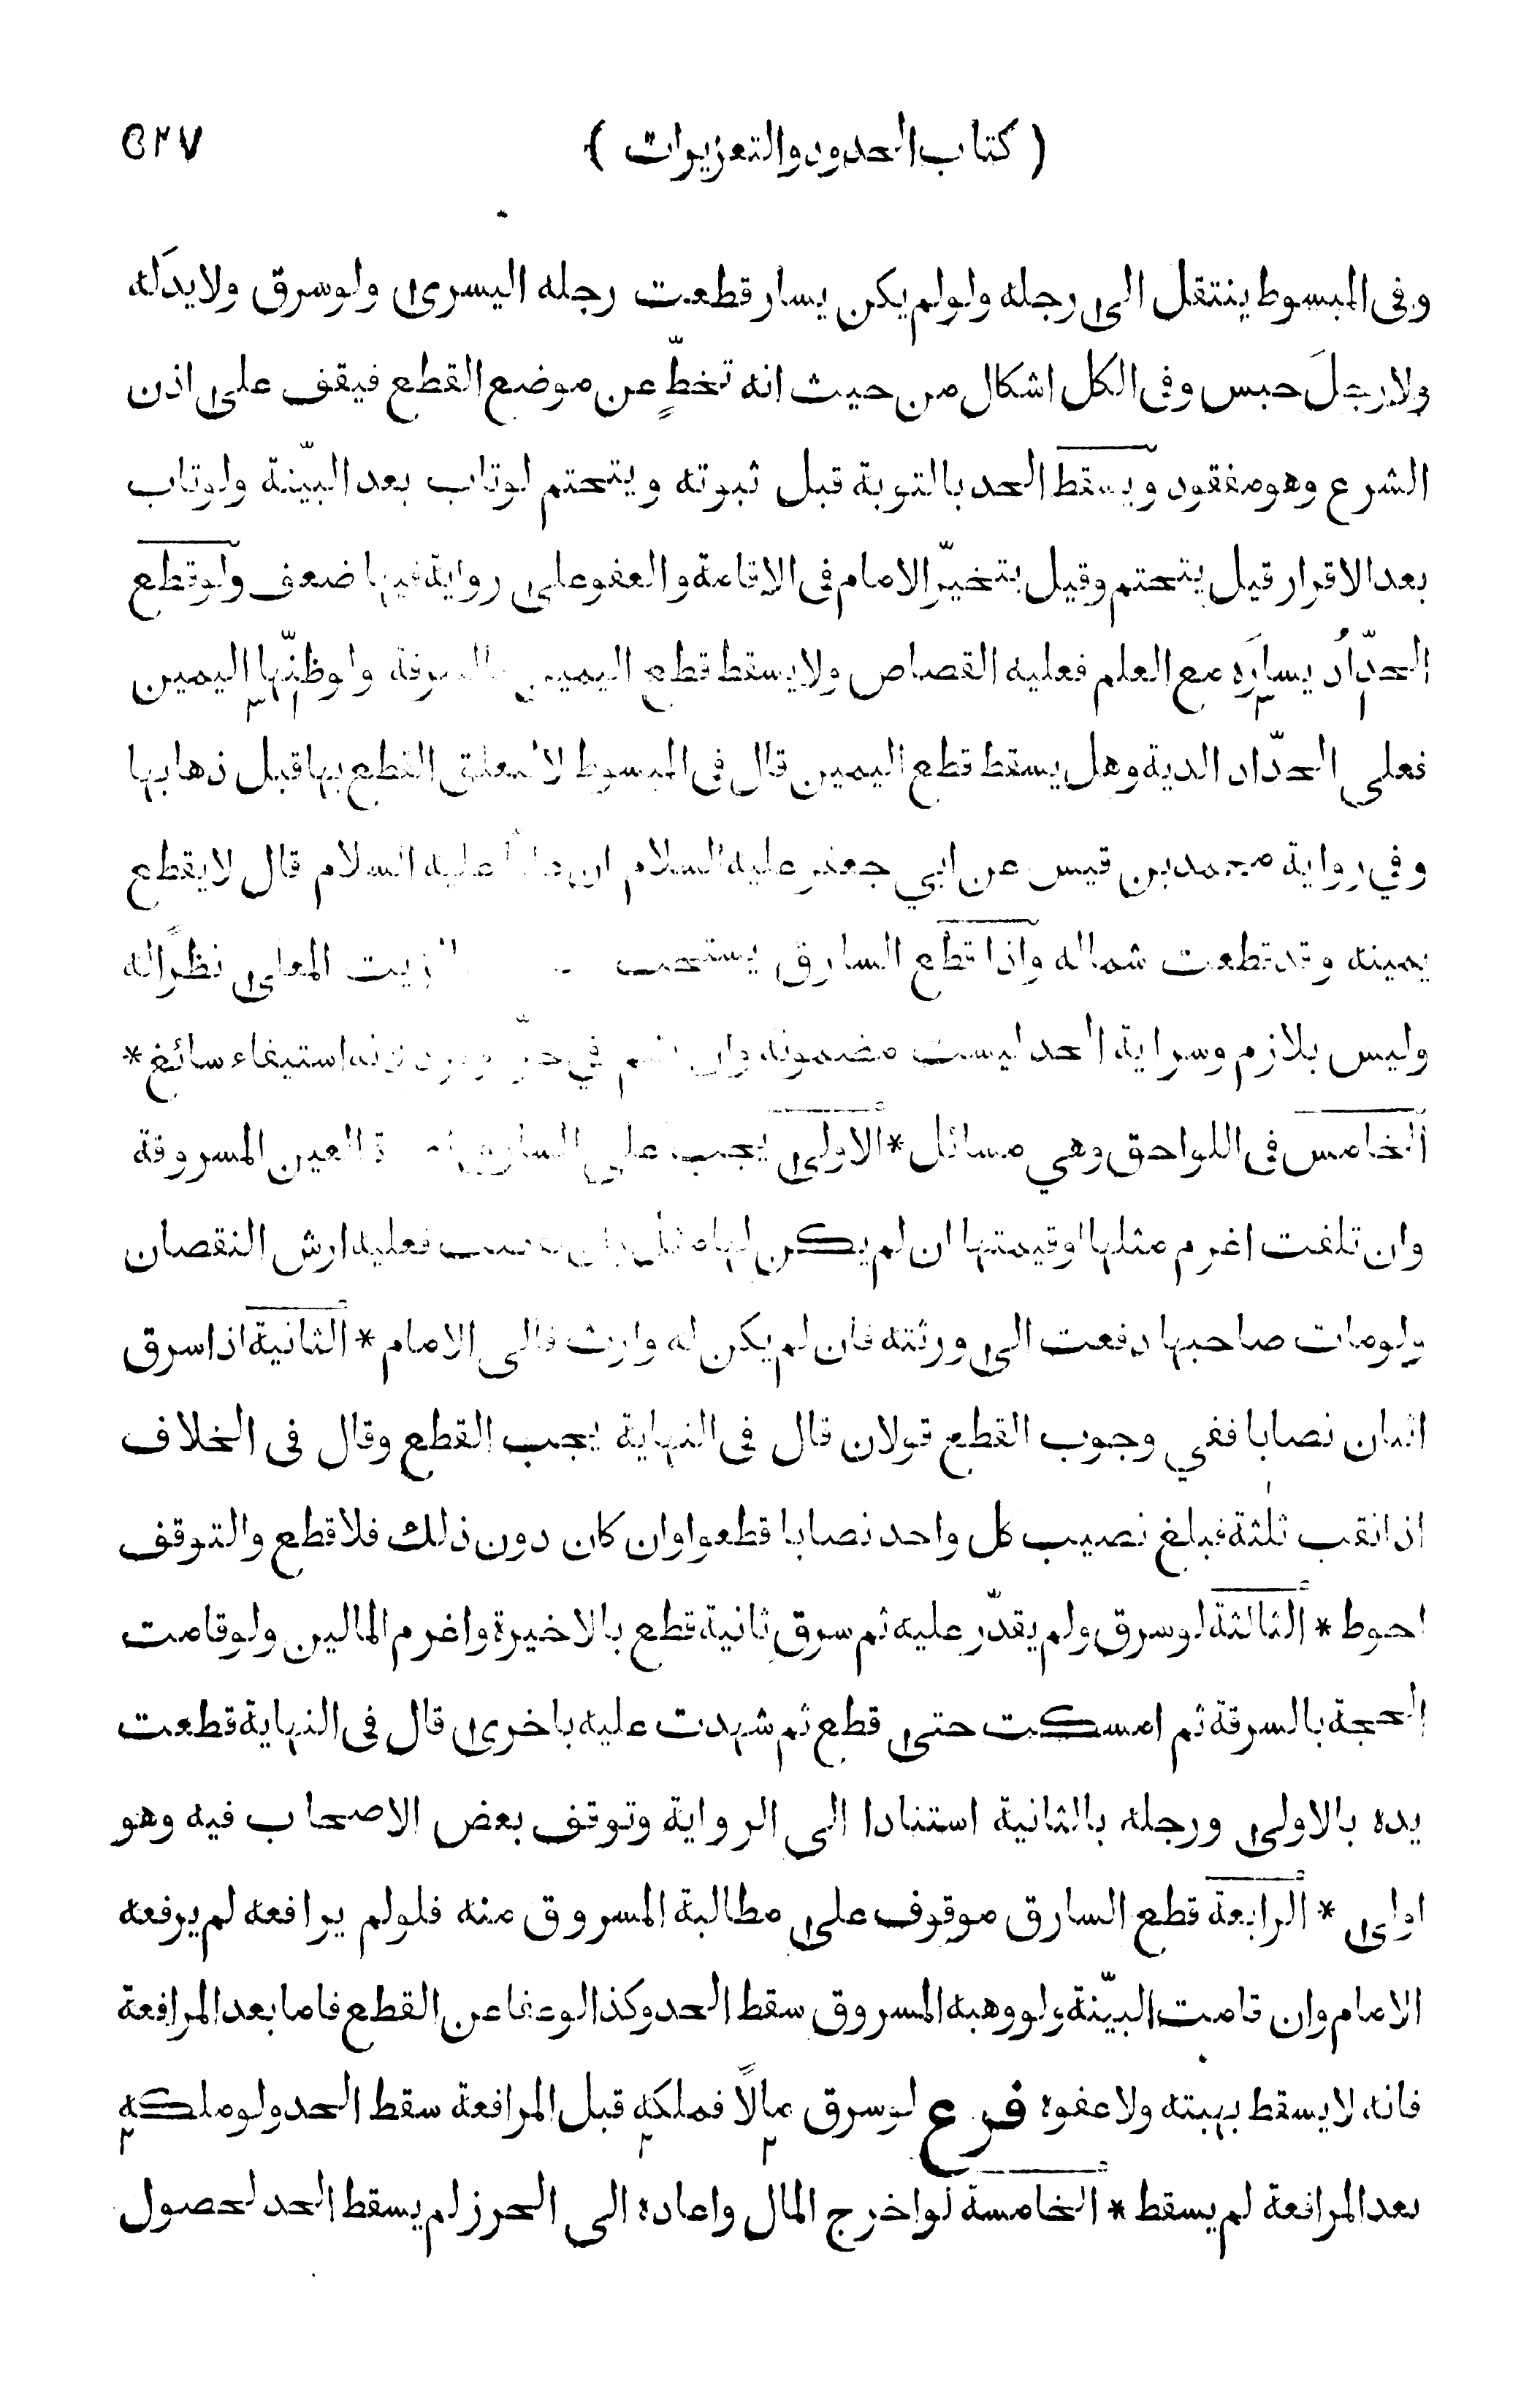 ( كتاب الحدود والتعزيرات ) ٥٢٧
وفى المبسوط ينتقل الى رجله ولو لم يكن يسار قطعت رجله اليسرى ولو سرق ولا يدَ له
ولا رجلَ حبس وفى الكل اشكال من حيث انه تخطٍّ عن موضع القطع فيقف على اذن
الشرع وهو مفقود ويسقط الحد بالتوبة قبل ثبوته ويتحتم لو تاب بعد البيّنة ولو تاب
بعد الاقرار قيل يتحتم وقيل يتخيّر الامام فى الاقامة والعفو على رواية فيها ضعف ولو قطع
الحدّادُ يسارَه مع العلم فعليه القصاص ولا يسقط قطع اليمين بالسرقة ولو ظنّها اليمين
فعلى الحدّاد الدية وهل يسقط قطع اليمين قال فى المبسوط لا لتعلق القطع بها قبل ذهابها
وفي رواية محمد بن قيس عن ابي جعفر عليه السلام ان عليا عليه السلام قال لا يقطع
يمينه وقد قطعت شماله واذا قطع السارق يستحب الزيت المغلى نظرًا له
وليس بلازم وسراية الحد ليست مضمونة وان في حرّ استيفاء سائغ *
الخامس فى اللواحق وهي مسائل * الاولى يجب على السارق العين المسروقة
وان تلفت اغرم مثلها او قيمتها ان لم يكن لها مثل وان نقصت فعليه ارش النقصان
ولو مات صاحبها دفعت الى ورثته فان لم يكن له وارث فالى الامام * الثانية اذا سرق
اثنان نصابا ففي وجوب القطع قولان قال فى النهاية يجب القطع وقال فى الخلاف
اذا نقب ثلثة فبلغ نصيب كل واحد نصابا قطعوا وان كان دون ذلك فلا قطع والتوقف
احوط * الثالثة لو سرق ولم يقدّر عليه ثم سرق ثانية قطع بالاخيرة واغرم المالين ولو قامت
الحجة بالسرقة ثم امسكت حتى قطع ثم شهدت عليه باخرى قال فى النهاية قطعت
يده بالاولى ورجله بالثانية استنادا الى الرواية وتوقف بعض الاصحاب فيه وهو
اولى * الرابعة قطع السارق موقوف على مطالبة المسروق منه فلو لم يرافعه لم يرفعه
الامام وان قامت البيّنة ولو وهبه المسروق سقط الحد وكذا لو عفا عن القطع فاما بعد المرافعة
فانه لا يسقط بهبته ولا عفوه فرع لو سرق مالًا فملكه قبل المرافعة سقط الحد ولو ملكه
بعد المرافعة لم يسقط * الخامسة لو اخرج المال واعاده الى الحرز لم يسقط الحد لحصول